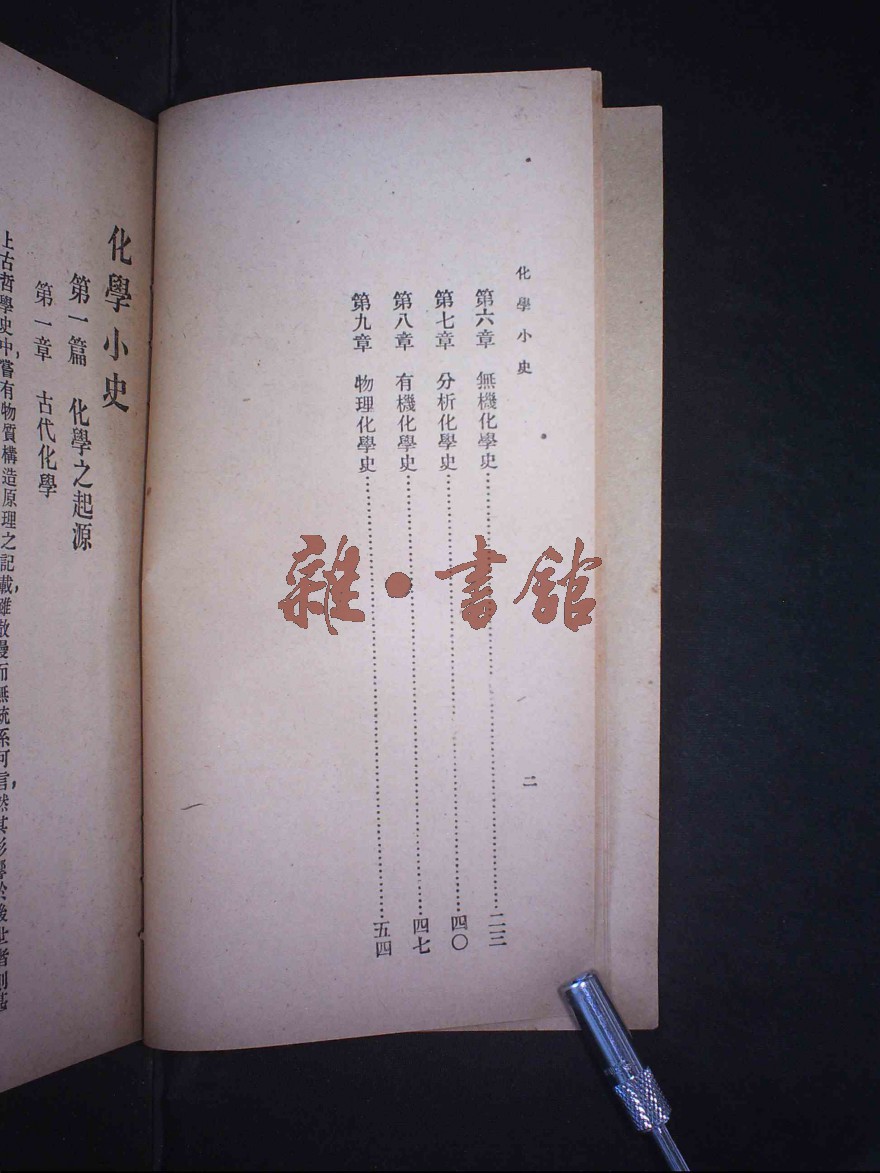 化學小史
二
第六章 無機化學史 二三
第七章 分析化學史 四〇
第八章 有機化學史 四七
第九章 物理化學史 五四
化學小史
第一篇 化學之起源
第一章 古代化學
上古哲學史中，嘗有物質構造原理之記載，雖散漫而無統系可言，然其影響於後世者則甚
雜·書館